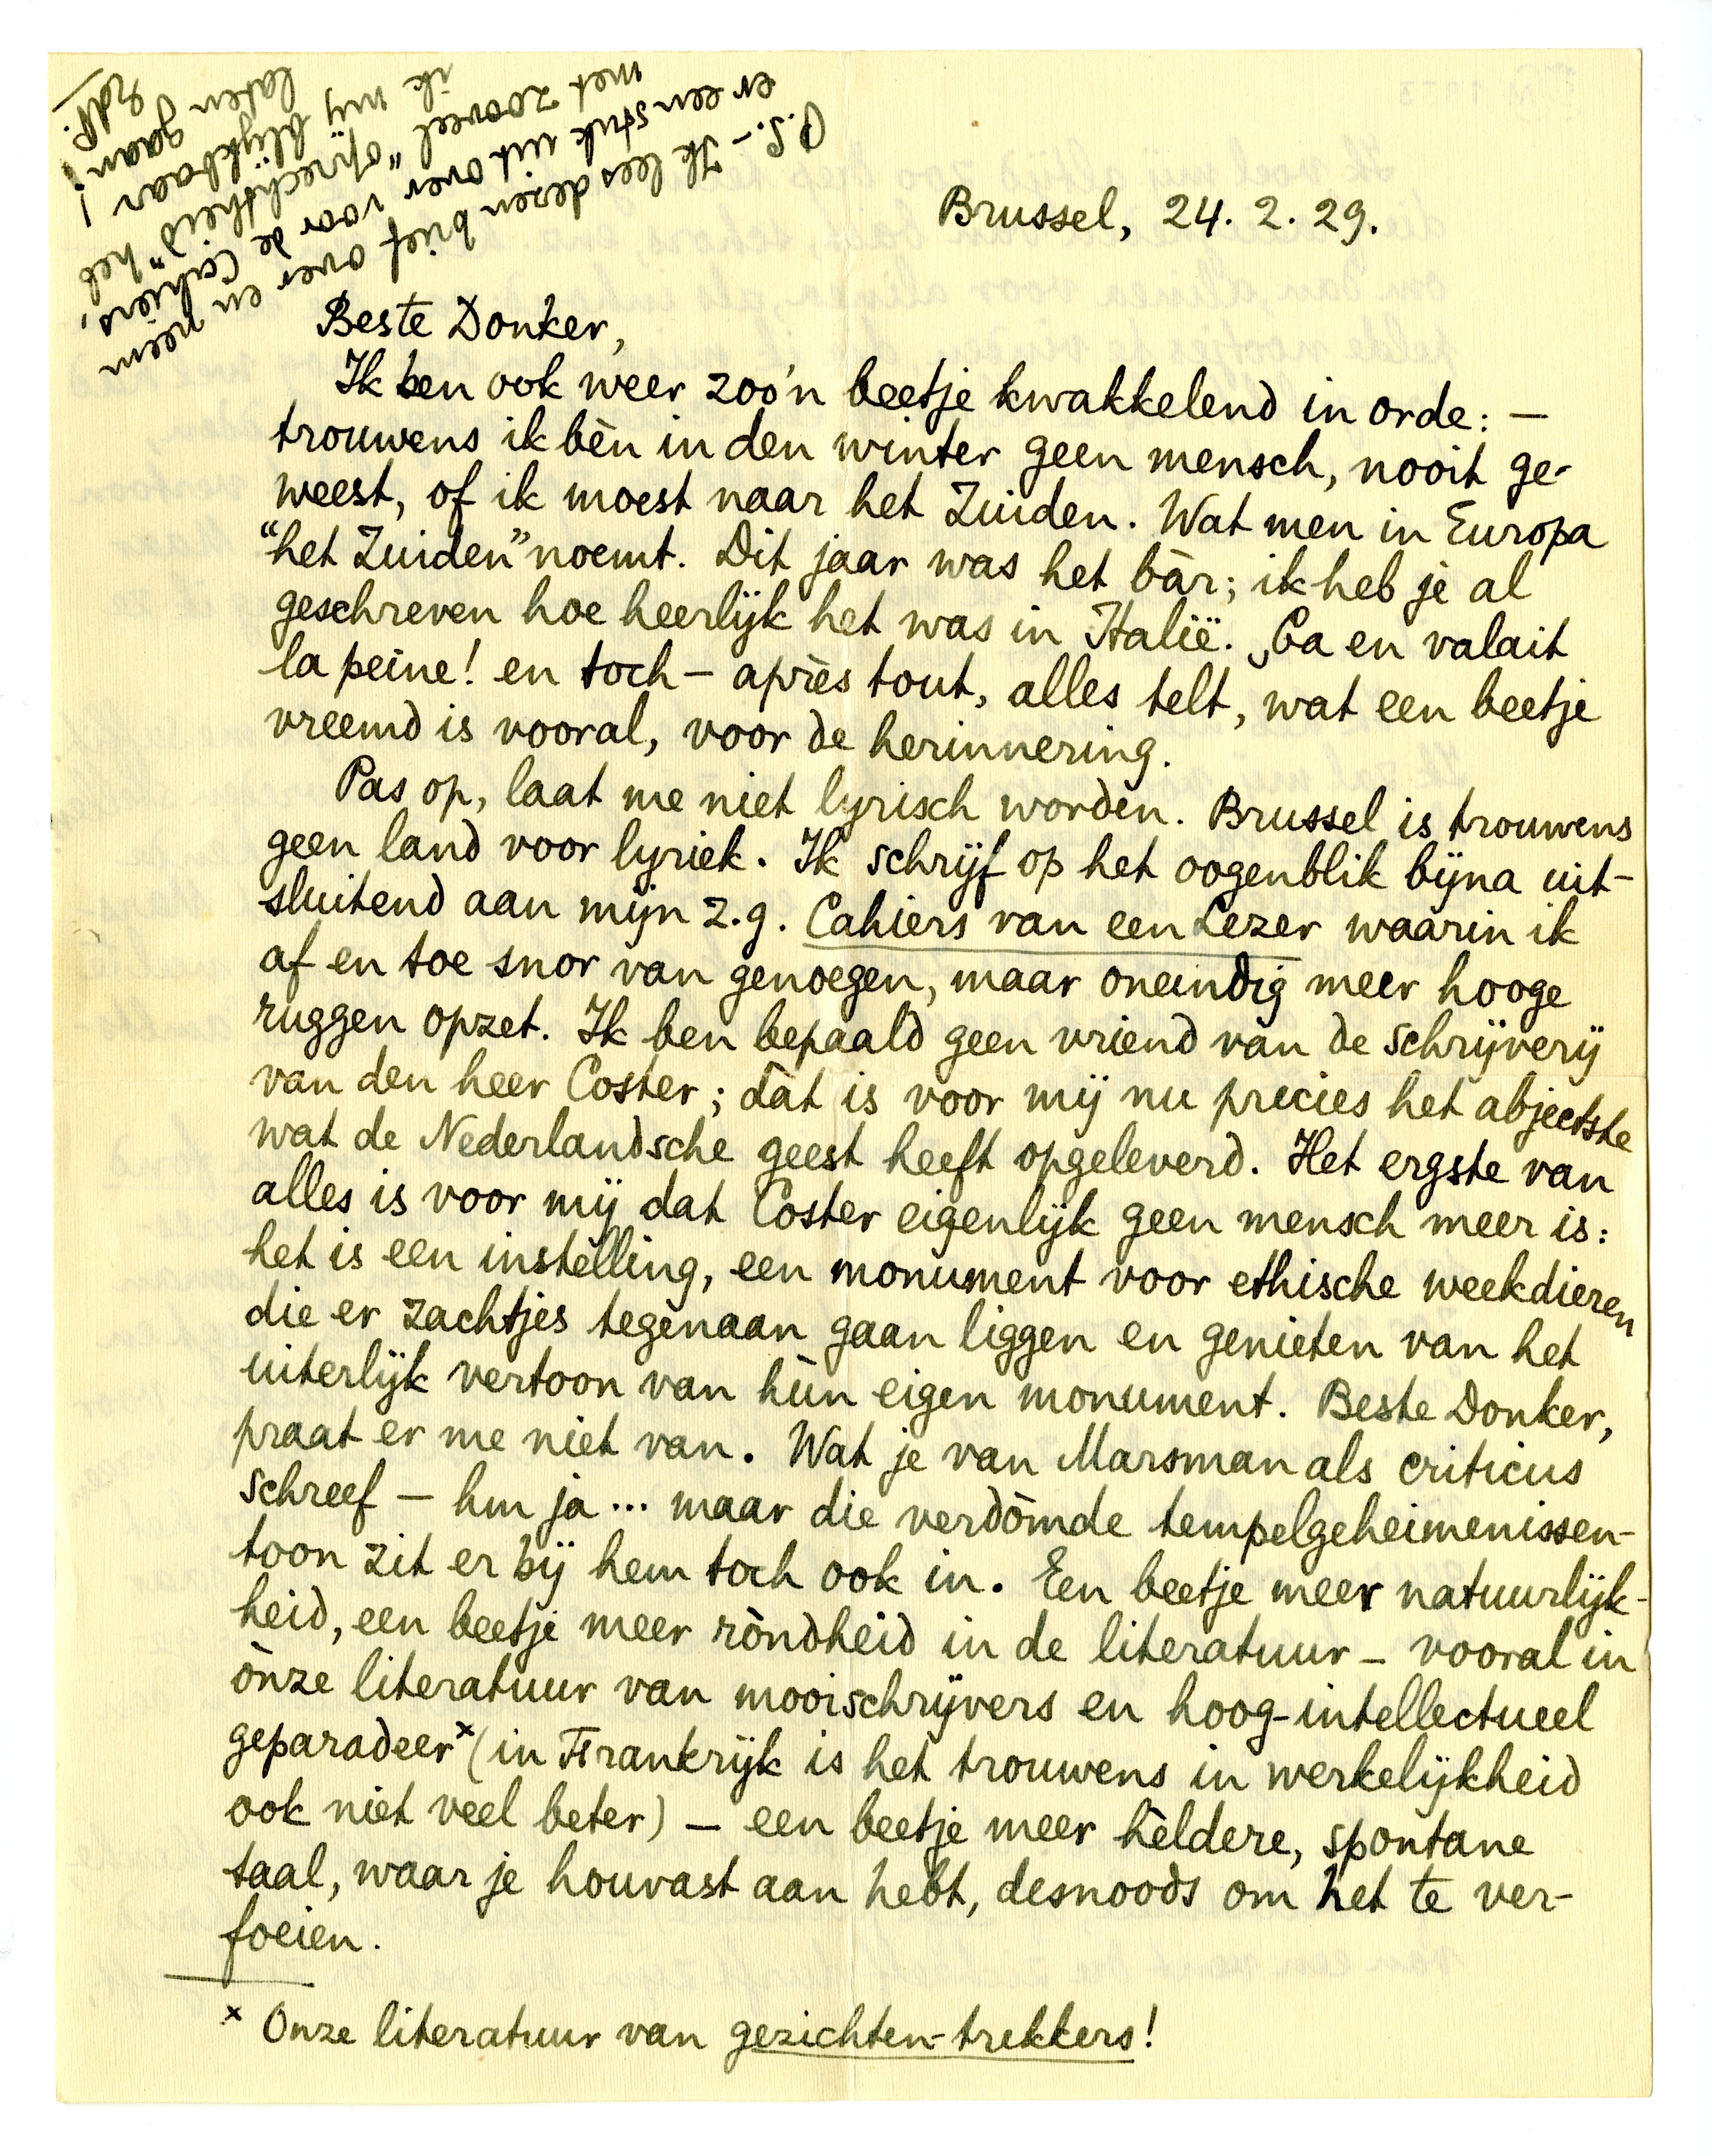 Brussel, 24. 2. 29.
Beste Donker,
Ik ben ook weer zoo'n beetje kwakkelend in orde: —
trouwens ik bèn in den winter geen mensch, nooit ge-
weest, of ik moest naar het Zuiden. Wat men in Europa
“het Zuiden” noemt. Dit jaar was het bàr; ik heb je al
geschreven hoe heerlijk het was in Italië. Ça en valait
la peine! en toch – après tout, alles telt, wat een beetje
vreemd is vooral, voor de herinnering.
Pas op, laat me niet lyrisch worden. Brussel is trouwens
geen land voor lyriek. Ik schrijf op het oogenblik bijna uit-
sluitend aan mijn z.g. Cahiers van een Lezer waarin ik
af en toe snor van genoegen, maar oneindig meer hooge
ruggen opzet. Ik ben bepaald geen vriend van de schrijverij
van den heer Coster; dàt is voor mij nu precies het abjectste
wat de Nederlandsche geest heeft opgeleverd. Het ergste van
alles is voor mij dat Coster eigenlijk geen mensch meer is:
het is een instelling, een monument voor ethische weekdieren
die er zachtjes tegenaan gaan liggen en genieten van het
uiterlijk vertoon van hùn eigen monument. Beste Donker,
praat er me niet van. Wat je van Marsman als criticus
schreef – hm ja ... maar die verdòmde tempelgeheimenissen-
toon zit er bij hem toch ook in. Een beetje meer natuurlijk-
heid, een beetje meer ròndheid in de literatuur – vooral in
ònze literatuur van mooischrijvers en hoog-intellectueel
geparadeer x (in Frankrijk is het trouwens in werkelijkheid
ook niet veel beter) – een beetje meer hèldere, spontane
taal, waar je houvast aan hebt, desnoods om het te ver-
foeien.
x Onze literatuur van gezichten-trekkers!
P.S. – Ik lees dezen brief over en neem
er een stuk uit over voor de Cahiers,
met zooveel “oprechtheid” heb
ik mij blijkbaar
laten gaan!
EdP.